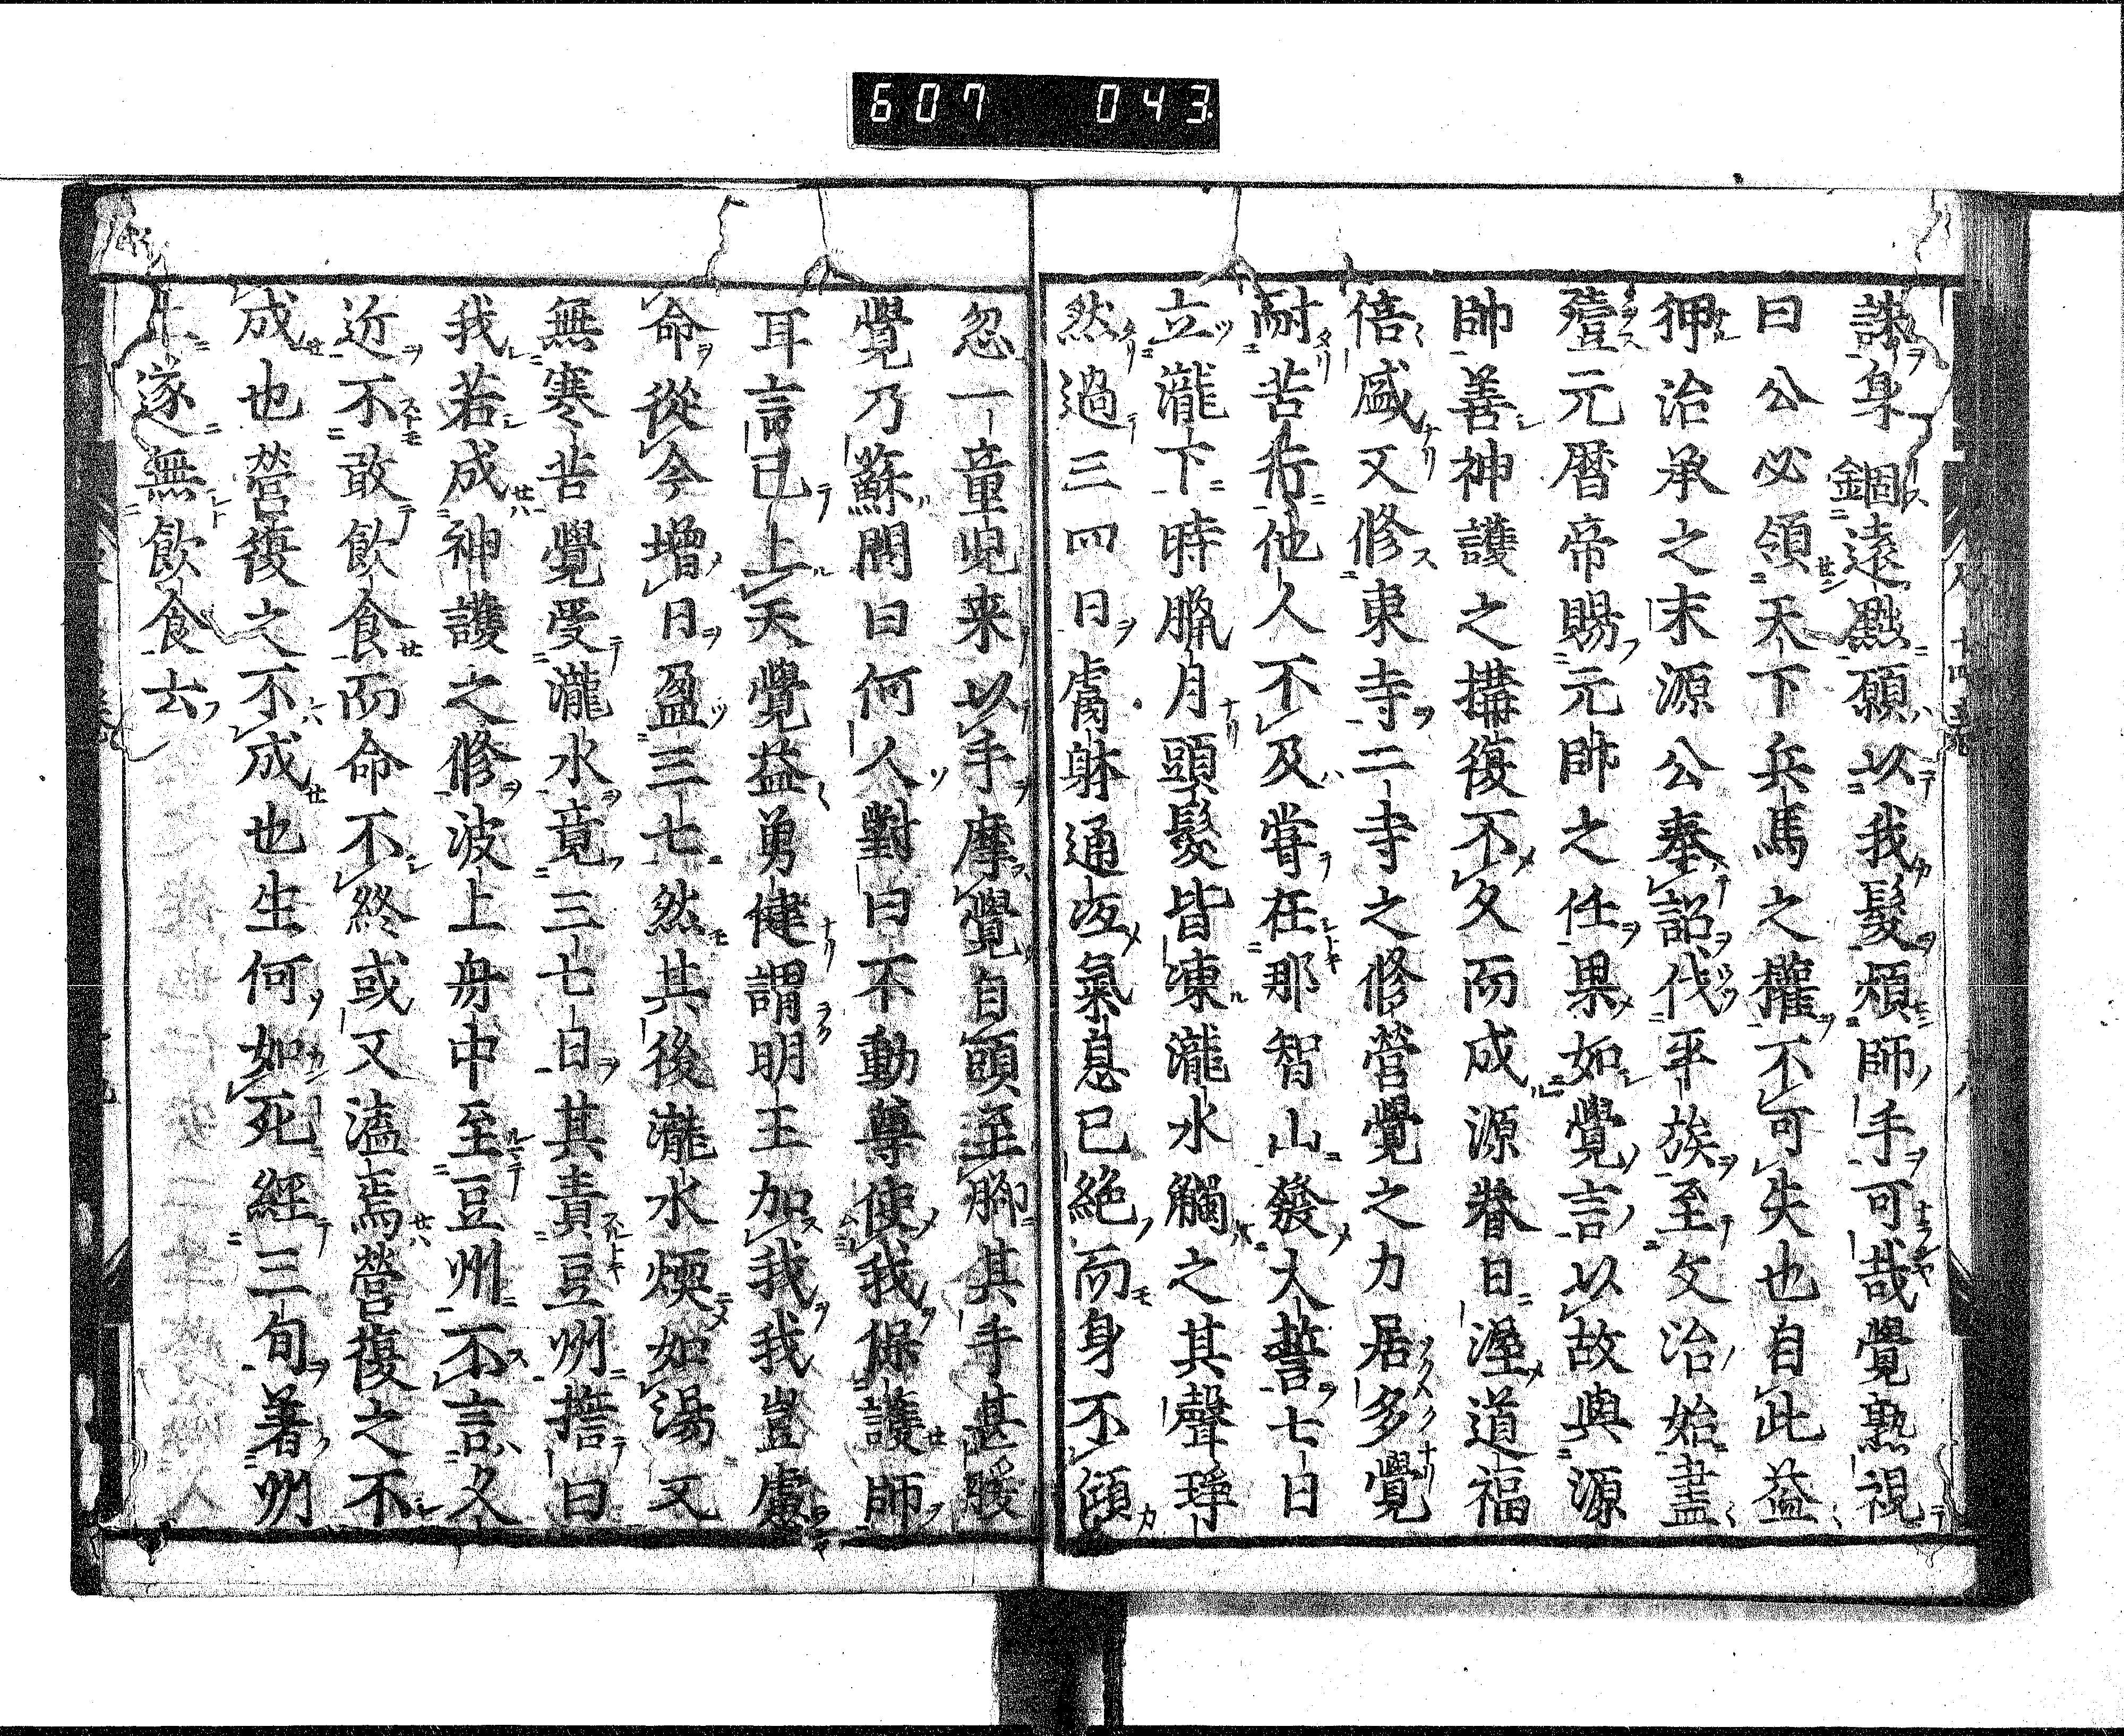 607 043
誅身錮遠黜願以我髮煩師手可哉覺熟視
曰公必領天下兵馬之權不可失也自此益
狎治承之末源公奉詔伐平族至文治始盡
殪元曆帝賜元帥之任果如覺言以故與源
帥善神護之搆復不久而成源眷日渥道福
倍盛又修東寺二寺之修營覺之力居多覺
耐苦行他人不及嘗在那智山發大誓七日
立瀧下時臘月頭髮皆凍瀧水觸之其聲琤
然過三四日膚躰通冱氣息已絕而身不傾
忽一童兒来以手摩覺自頭至脚其手甚暖
覺乃蘇問曰何人對曰不動尊使我保護師
耳言已上天覺益勇健謂明王加我我豈慮
命從今增日盈三七然其後瀧水煗如湯又
無寒苦覺受瀧水竟三七日其責豆州擔曰
我若成神護之修波上舟中至豆州不言久
近不敢飲食而命不終或又溘焉營復之不
成也營復之不成也生何如死經三旬著州
遂無飲食去